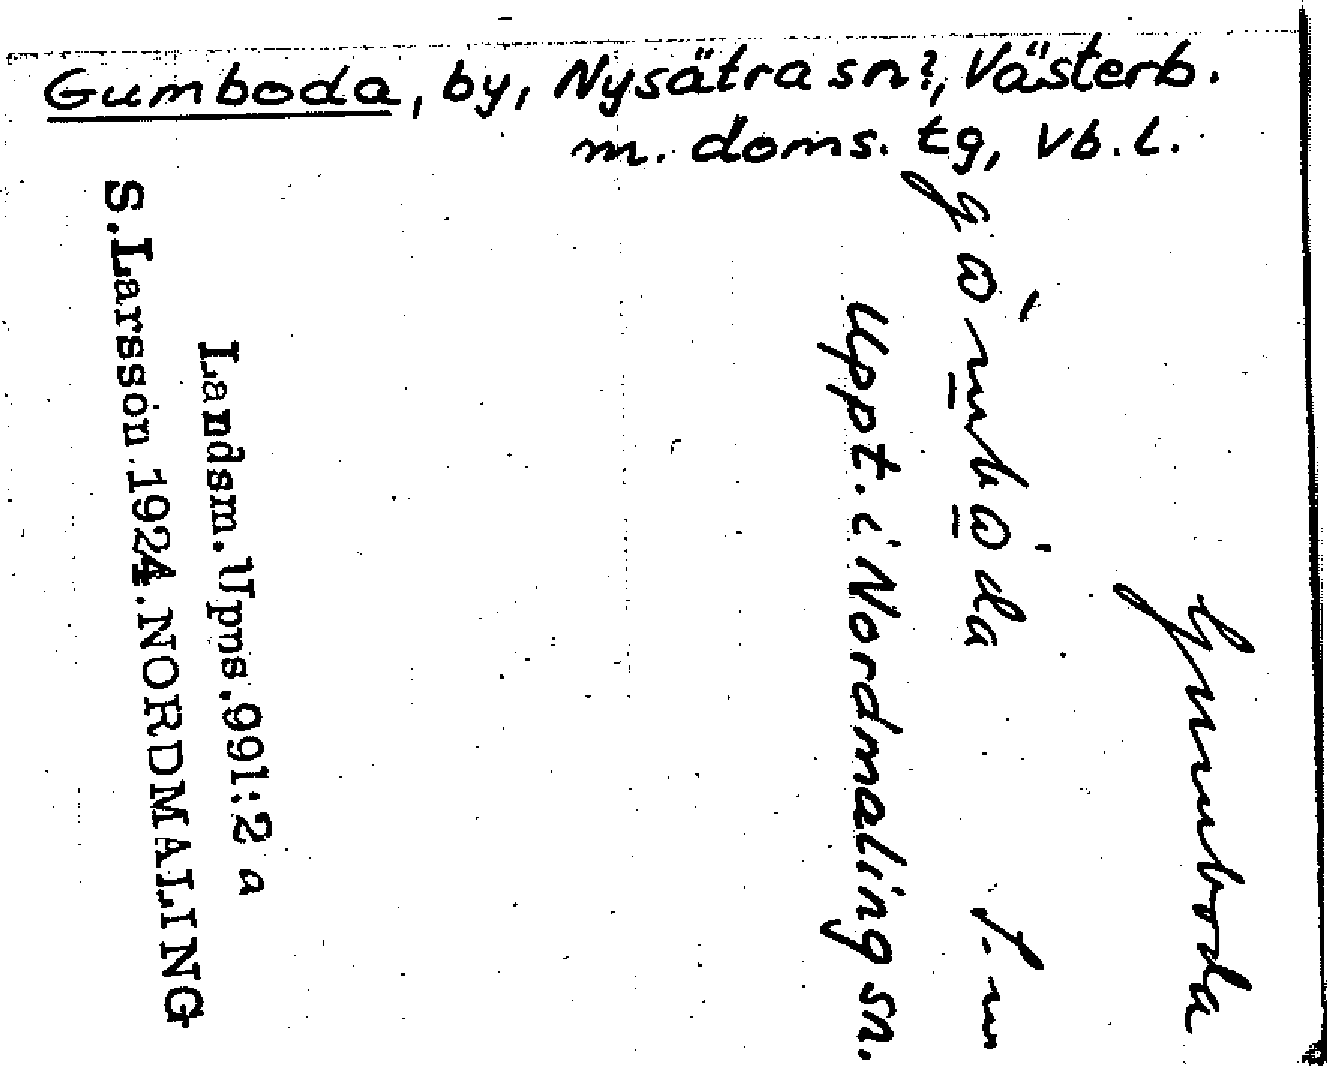 Gumboda, by, Nysätra sn?, Västerb.
m. doms. tg, Vb. l.
Gumboda
f. n
Uppt. i Nordmaling sn.
Landsm. Upps. 991:2 a
S. Larsson 1924. NORDMALING